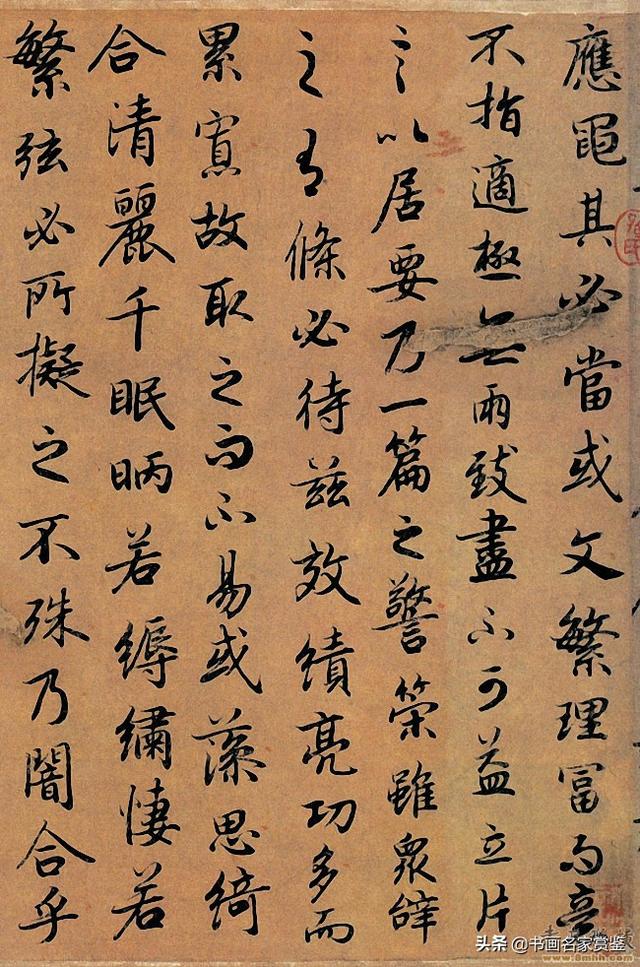 應黽其必當或文繁理冨而意
不指適極無兩致盡不可益立片
言以居要乃一篇之警策雖衆辭
之有條必待茲效績亮功多而
累寡故取之而不易或藻思綺
合清麗千眠昞若縟繡悽若
繁弦必所擬之不殊乃闇合乎
头条 @书画名家赏鉴